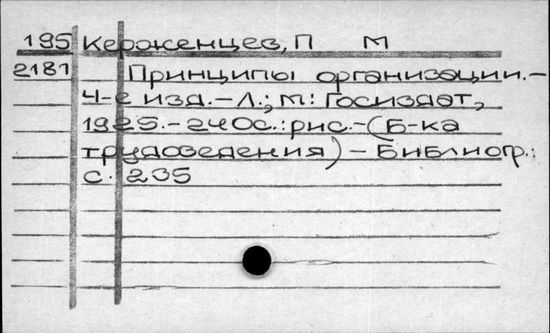 195 Керженцев, П М
2181 Принципы организации.-
4-е изд.-Л.; М: Госиздат,
1925.-240с.: рис.-(Б-ка
трудоведения) - Библиогр.:
с. 235